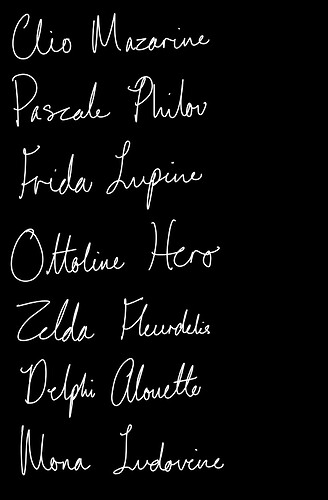 Clio Mazarine
Pascale Philou
Frida Lupine
Ottoline Hero
Zelda Fleurdelis
Delphi Alouette
Mona Ludovine